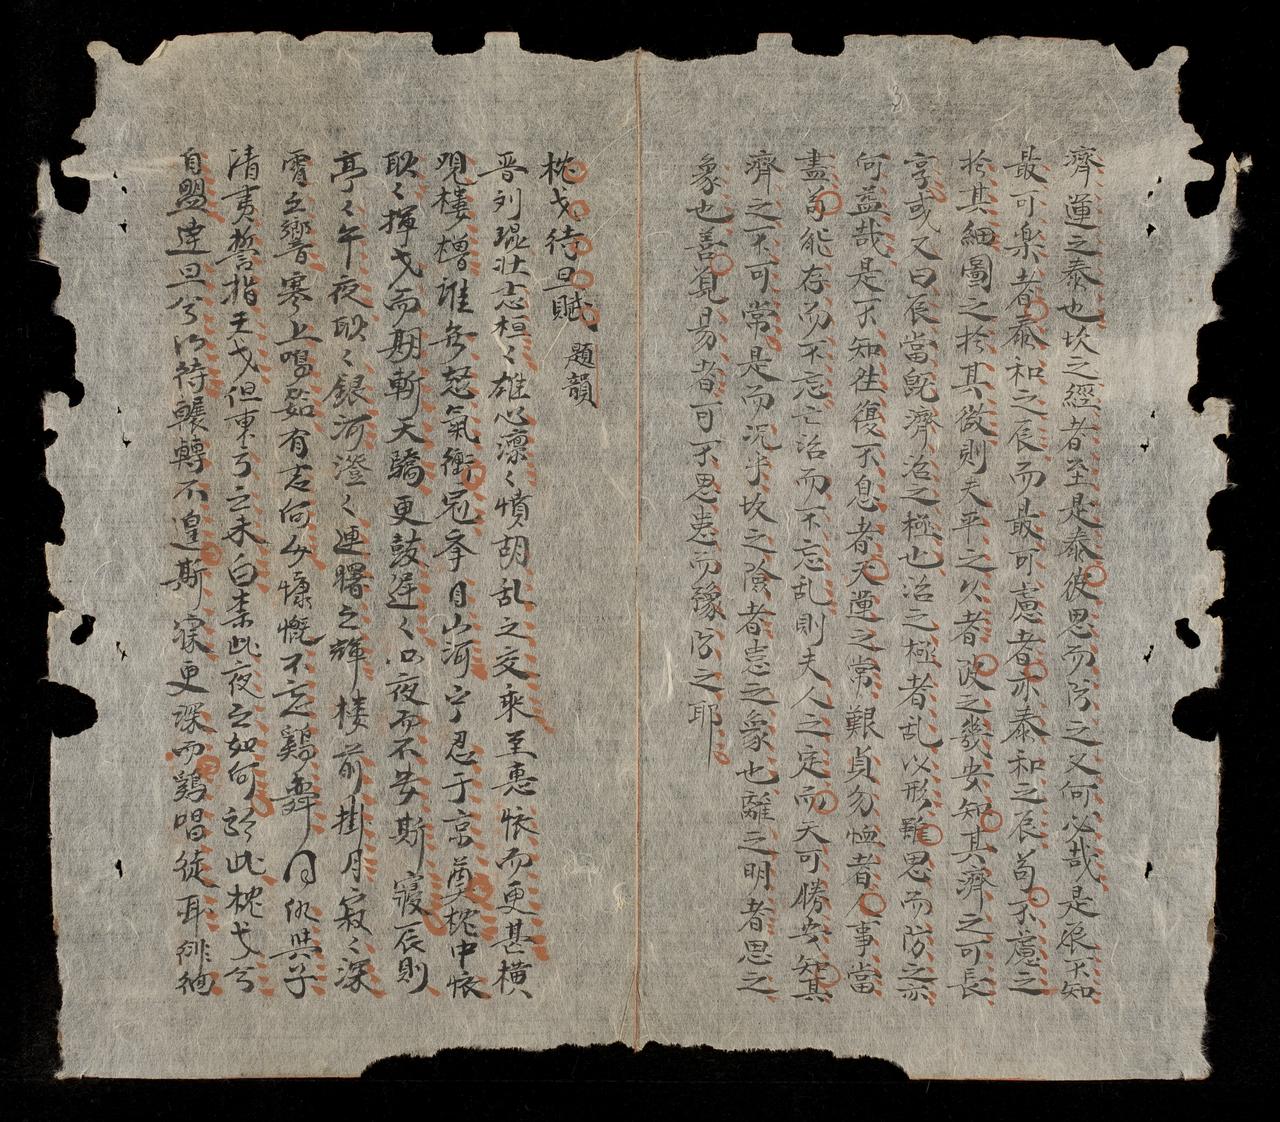 濟運之泰也坎之經者至是泰彼思而防之又何必哉是很不知
最可樂者泰和之辰而最可慮者亦泰和之辰苟不慮之
於其細圖之於其微則夫平之久者陂之幾安知其濟之可長
享或又曰辰當旣濟治之極也治之極者乱以形雖思而防之亦
何益哉是不知往復不息者天運之常艱貞勿恤者人事當
盡苟能存而不忘亡治而不忘乱則夫人之定而天可勝安知其
濟之不可常是而况乎坎之陰者患之象也離之明者思之
象也善覓易者可不思患而豫防之耶
枕戈待旦賦 題韻
晋列琨壯志桓々雄心凛々憤胡乱之交乘至惠懷而更甚橫
覌樓櫓誰兮怒氣衝冠季月山河宁忍于京奠枕中懷
耿々揮戈而期斬天驕更鼓遅々以夜而不安斯寢辰則
亭々午夜耿々銀河澄々連曙之輝樓前掛月寂々深
霄之響寒上鳴笳有志向分慷慨不忘鷄舞同仇與子
清夷誓指天戈但東方之未白柰此夜之如何於此枕戈兮
自盟達旦兮以待輾轉不遑斯寐更深而鷄唱徒耳徘徊